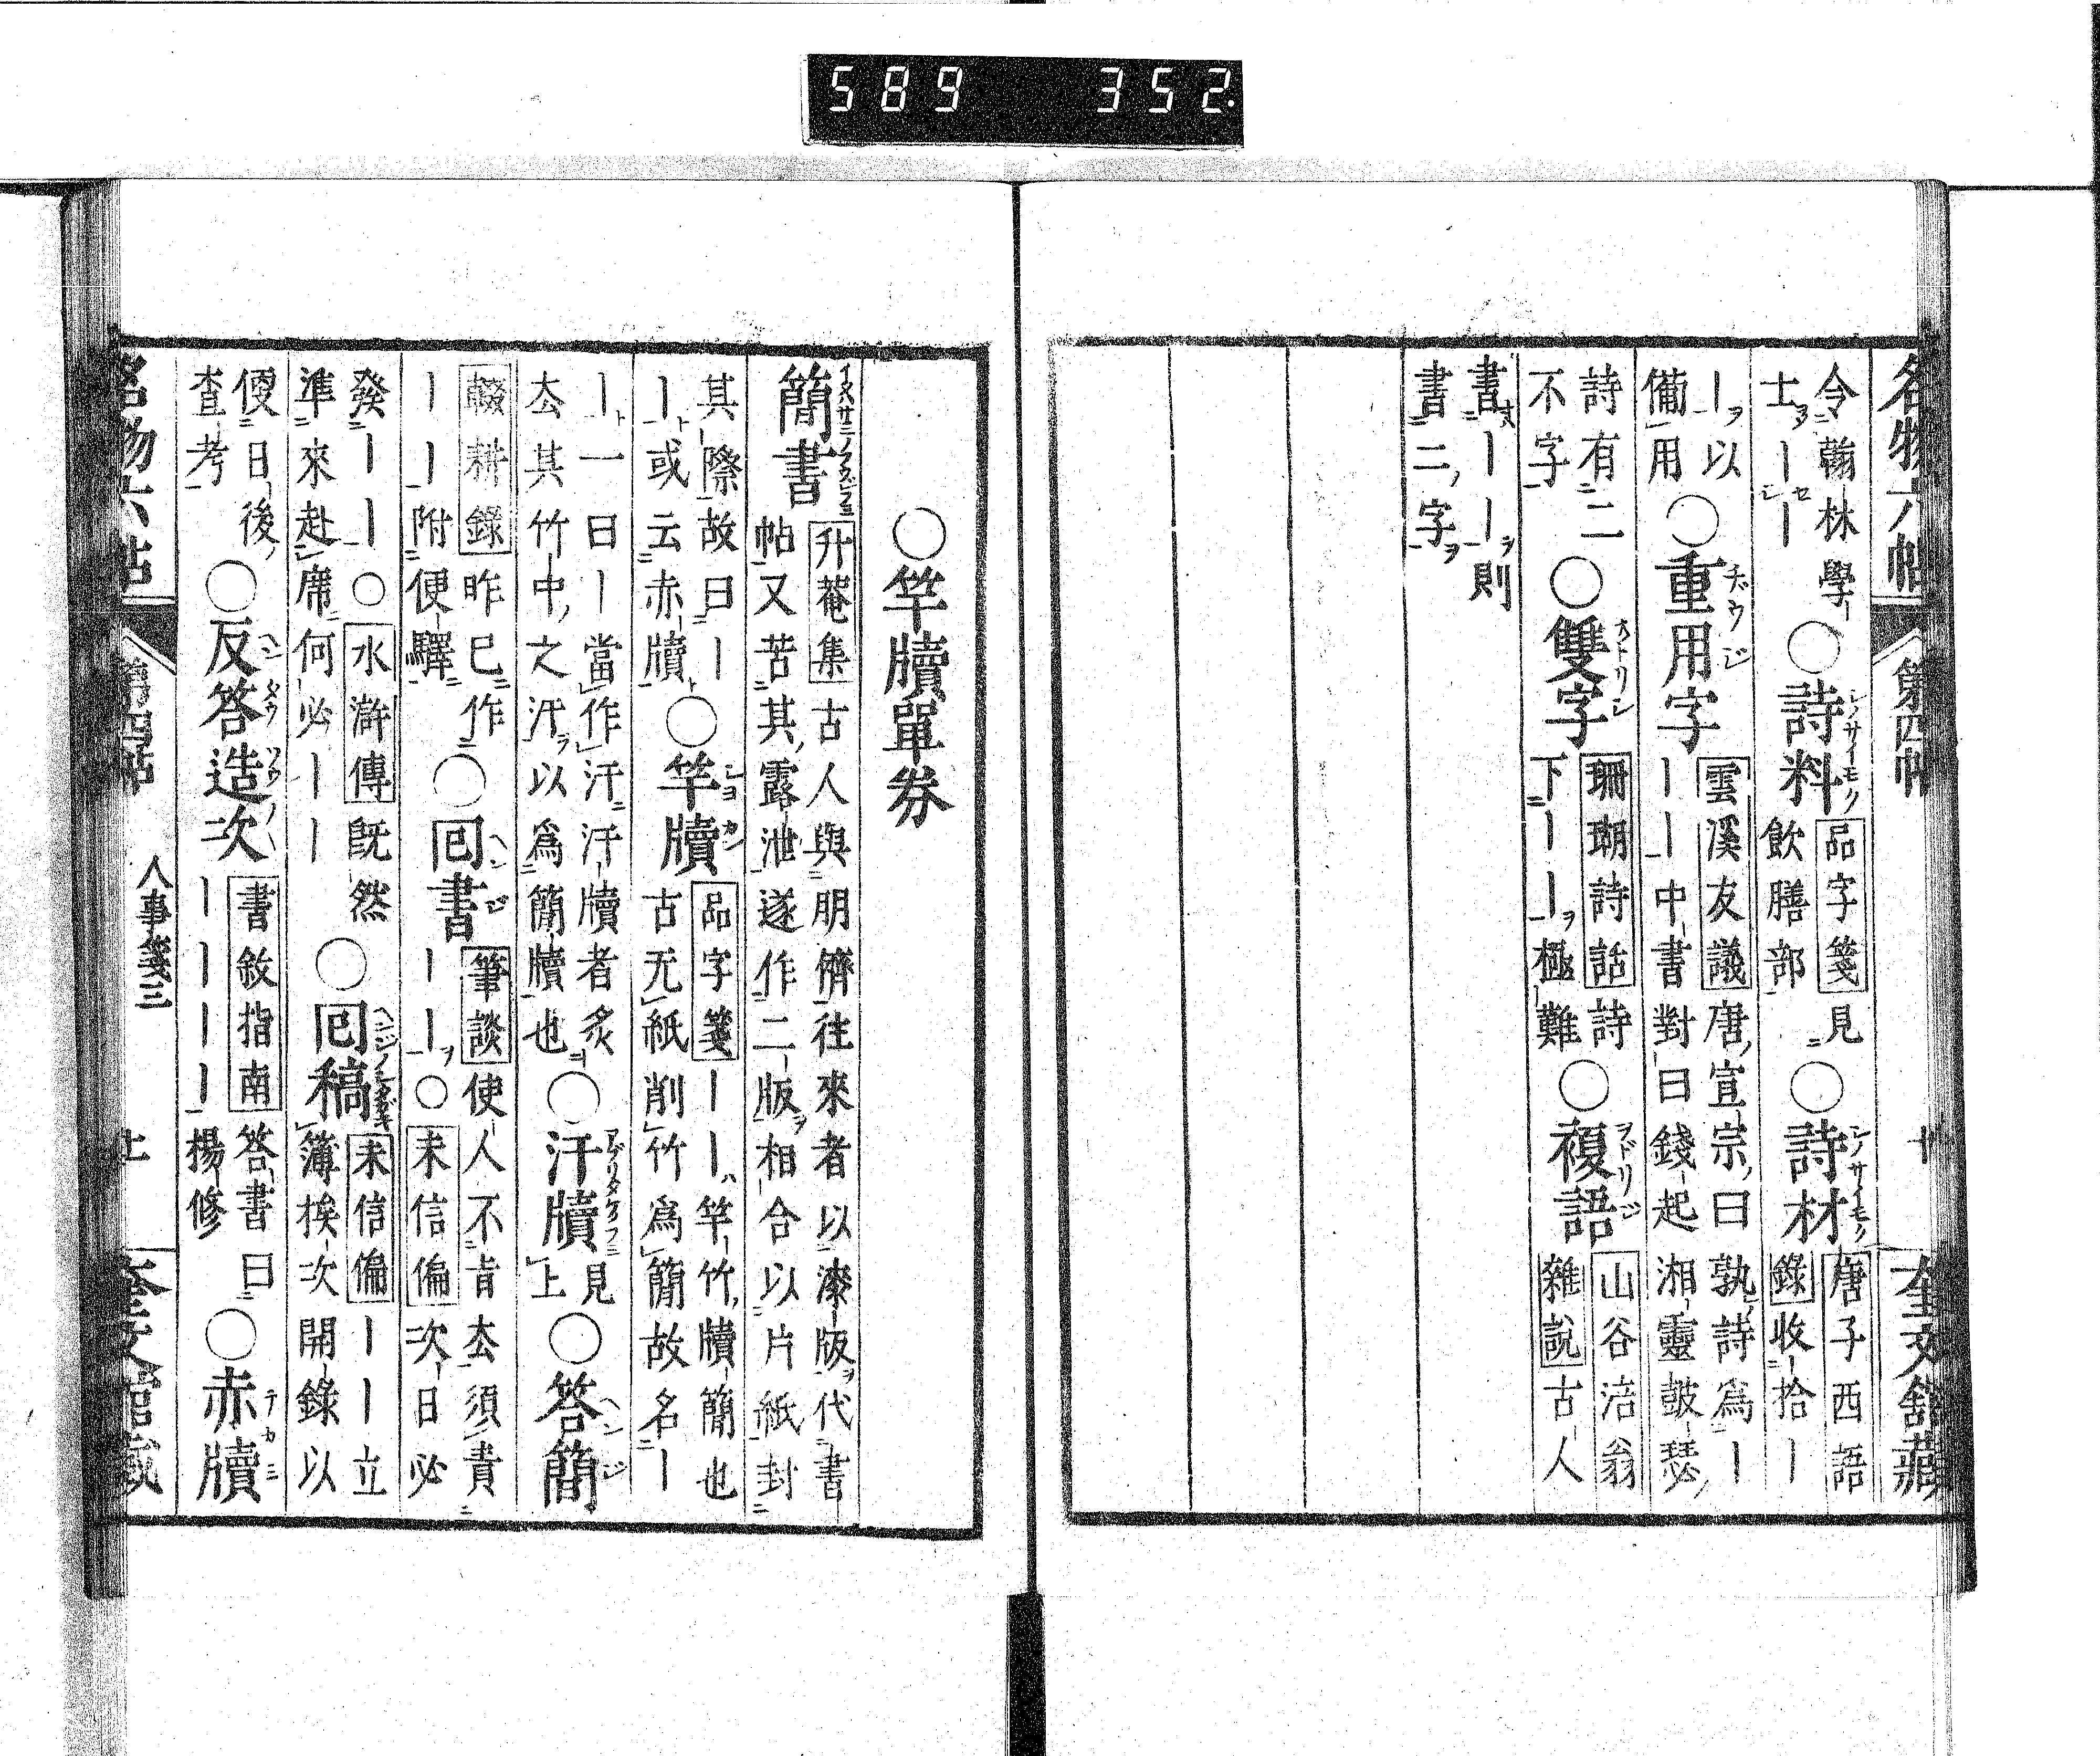 589 352.
名物六帖 第四帖 奎文館藏
令翰林學
士｜｜
○詩料
品字箋見
飲膳部
○詩材
唐子西語
錄收拾｜
｜以
備用
○重用字
雲溪友議唐宣宗曰孰詩為｜
｜｜中書對曰錢起湘靈鼓瑟
詩有二
不字
○雙字
珊瑚詩話詩
下｜｜極難
○複語
山谷涪翁
雜說古人
書｜｜則
書二字
○竿牘單券
簡書
升菴集古人與朋儕往來者以漆版代書
帖又苦其露泄遂作二版相合以片紙封
其際故曰｜
｜或云赤牘
○竿牘
品字箋｜｜竿竹牘簡也
古无紙削竹為簡故名｜
｜一曰｜當作汗汗牘者炙
去其竹中之汗以為簡牘也
○汗牘
見
上
○答簡
輟耕錄昨已作
｜｜附便驛
○囘書
筆談使人不肯去須責
｜｜○耒信偏次日必
發｜｜○水滸傳既然
準來赴席何必｜｜
○囘稿
耒信偏｜｜立
簿挨次開錄以
便日後
査考
○反答造次
書敘指南答書曰
｜｜｜｜楊修
○赤牘
名物六帖 第四帖 人事箋三 奎文館藏